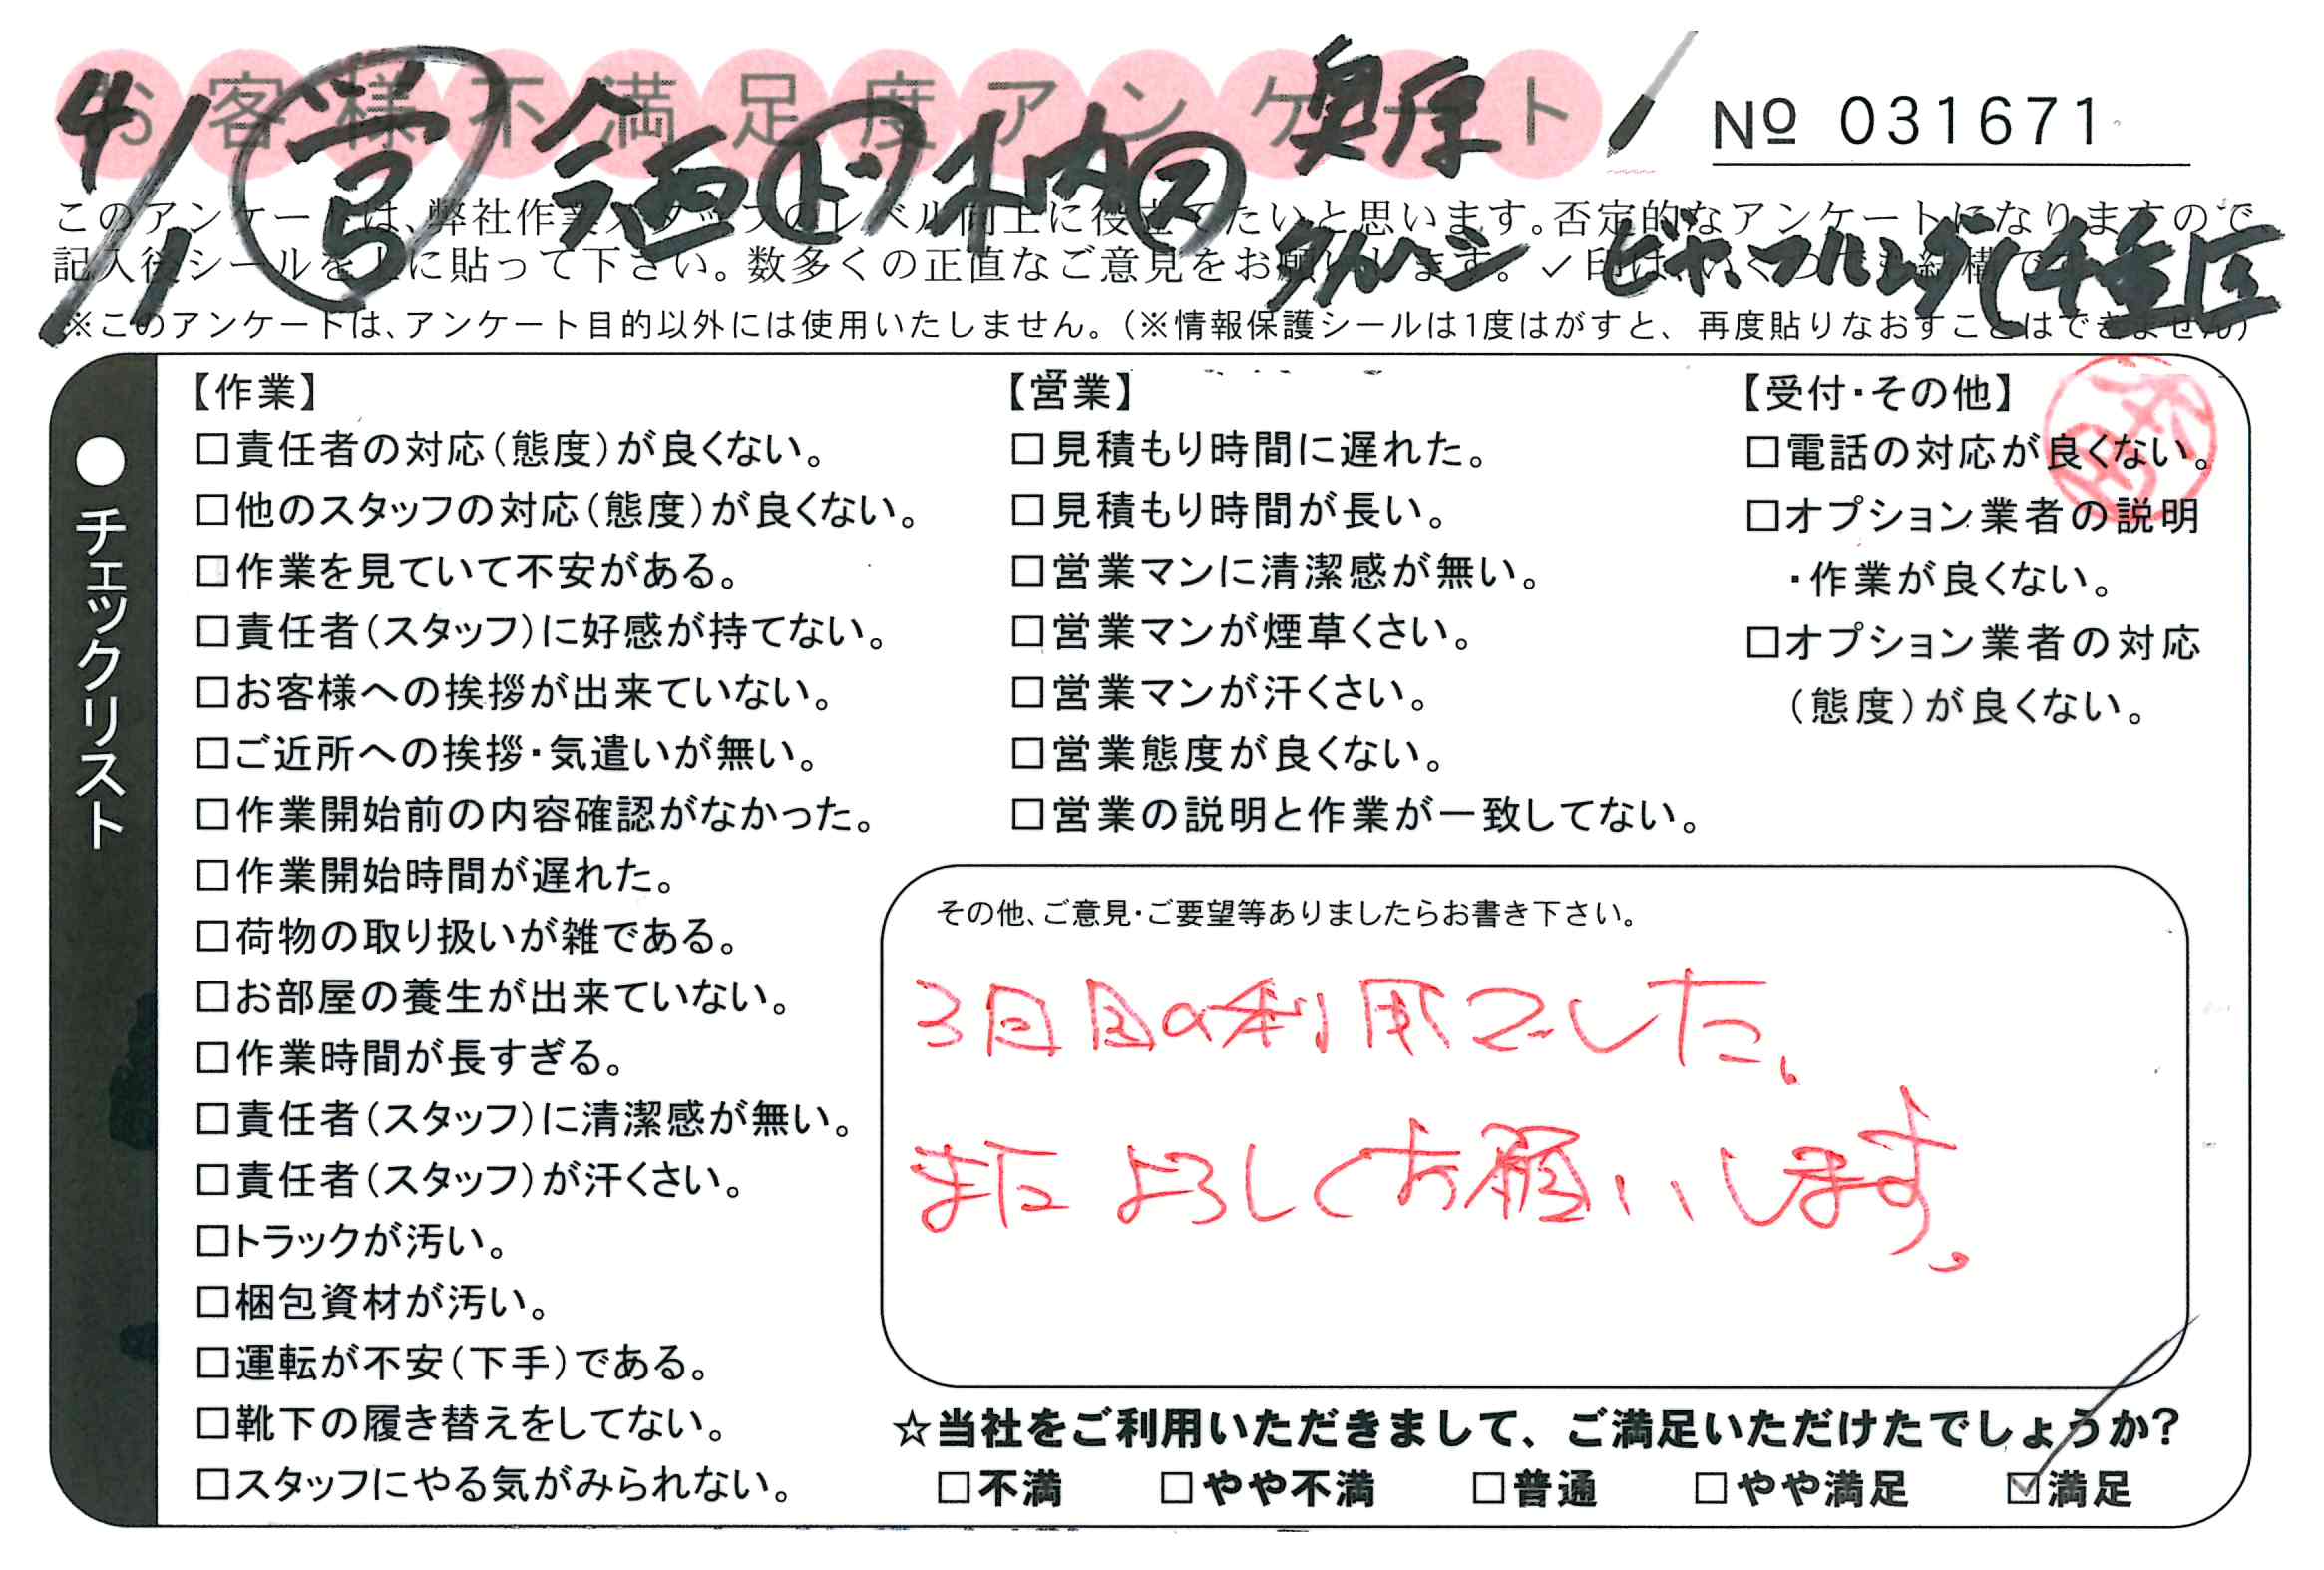 お客様不満足度アンケート
№ 031671
4/1 営 今西 ド 木内 ス 奥原
このアンケートは、弊社作業スタッフのレベル向上に役立てたいと思います。否定的なアンケートになりますので
記入後シールを上に貼って下さい。数多くの正直なご意見をお願いします。✓印はいくつでも結構で
(※このアンケートは、アンケート目的以外には使用いたしません。(※情報保護シールは1度はがすと、再度貼りなおすことはできません)
千種区
●チェックリスト
【作業】
□責任者の対応(態度)が良くない。
□他のスタッフの対応(態度)が良くない。
□作業を見ていて不安がある。
□責任者(スタッフ)に好感が持てない。
□お客様への挨拶が出来ていない。
□ご近所への挨拶・気遣いが無い。
□作業開始前の内容確認がなかった。
□作業開始時間が遅れた。
□荷物の取り扱いが雑である。
□お部屋の養生が出来ていない。
□作業時間が長すぎる。
□責任者(スタッフ)に清潔感が無い。
□責任者(スタッフ)が汗くさい。
□トラックが汚い。
□梱包資材が汚い。
□運転が不安(下手)である。
□靴下の履き替えをしてない。
□スタッフにやる気がみられない。
【営業】
□見積もり時間に遅れた。
□見積もり時間が長い。
□営業マンに清潔感が無い。
□営業マンが煙草くさい。
□営業マンが汗くさい。
□営業態度が良くない。
□営業の説明と作業が一致してない。
【受付・その他】
□電話の対応が良くない。
□オプション業者の説明
・作業が良くない。
□オプション業者の対応
(態度)が良くない。
その他、ご意見・ご要望等ありましたらお書き下さい。
3回目の利用でした、
またよろしくお願いします。
☆当社をご利用いただきまして、ご満足いただけたでしょうか?
□不満 □やや不満 □普通 □やや満足 ☑満足